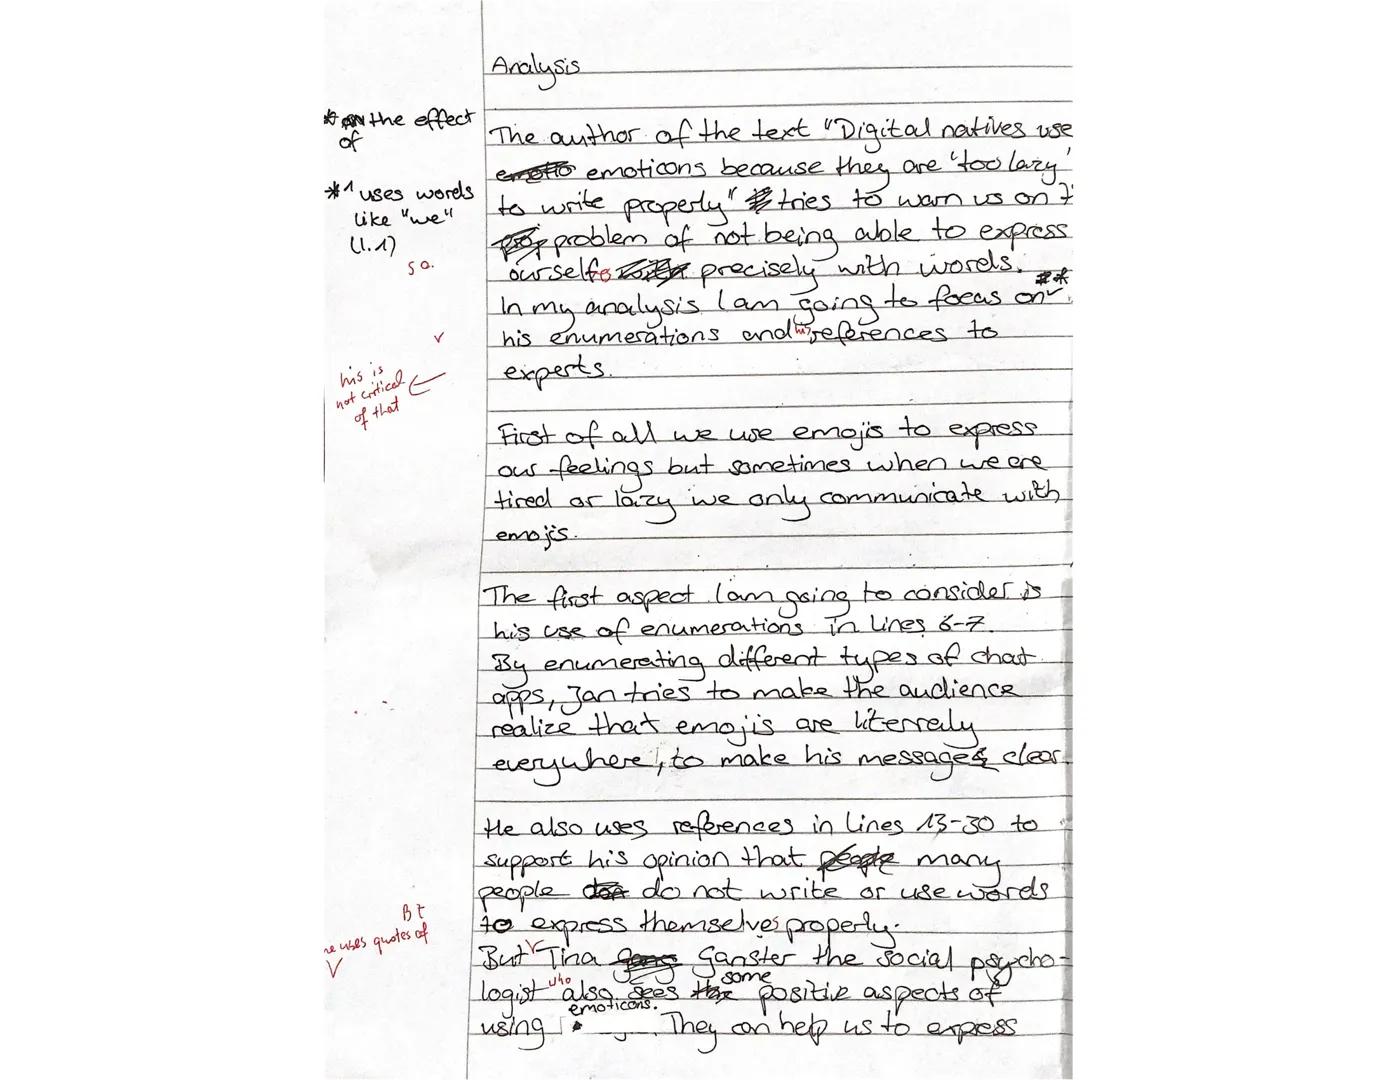 Analysis
* the effect
of
The author of the text "Digital natives use
emoticons because they are 'too lazy'
*1 uses words
like "we"
(l. 1)
to write properly" tries to warn us on
problem of not being able to express
so.
ourselfs precisely with words.
In my analysis I am going to focus on **
his enumerations and his references to
experts.
his is
not critical
of that
First of all we use emojis to express
our feelings but sometimes when we are
tired or lazy we only communicate with
emojis.
The first aspect I am going to consider is
his use of enumerations in lines 6-7.
By enumerating different types of chat
apps, Jan tries to make the audience
realize that emojis are literraly
everywhere, to make his message clear.
He also uses references in lines 13-30 to
support his opinion that many
people do not write or use words
to express themselves properly.
Bt
he uses quotes of
But Tina Ganster the social psycho-
logist who also sees some positive aspects of
using emoticons. They can help us to express